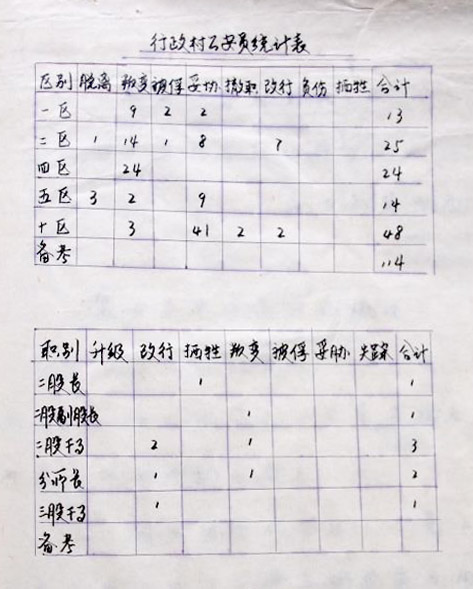 行政村公安员统计表
区别 脱离 叛变 被俘 妥协 撤职 改行 负伤 牺牲 合计
一区 9 2 2 13
二区 1 14 1 8 7 25
四区 24 24
五区 3 2 9 14
十区 3 41 2 2 48
备考 114
职别 升级 改行 牺牲 叛变 被俘 妥协 失踪 合计
二股长 1 1
二股副股长 1 1
二股干事 2 1 3
分所长 1 1 2
三股干事 1 1
备考